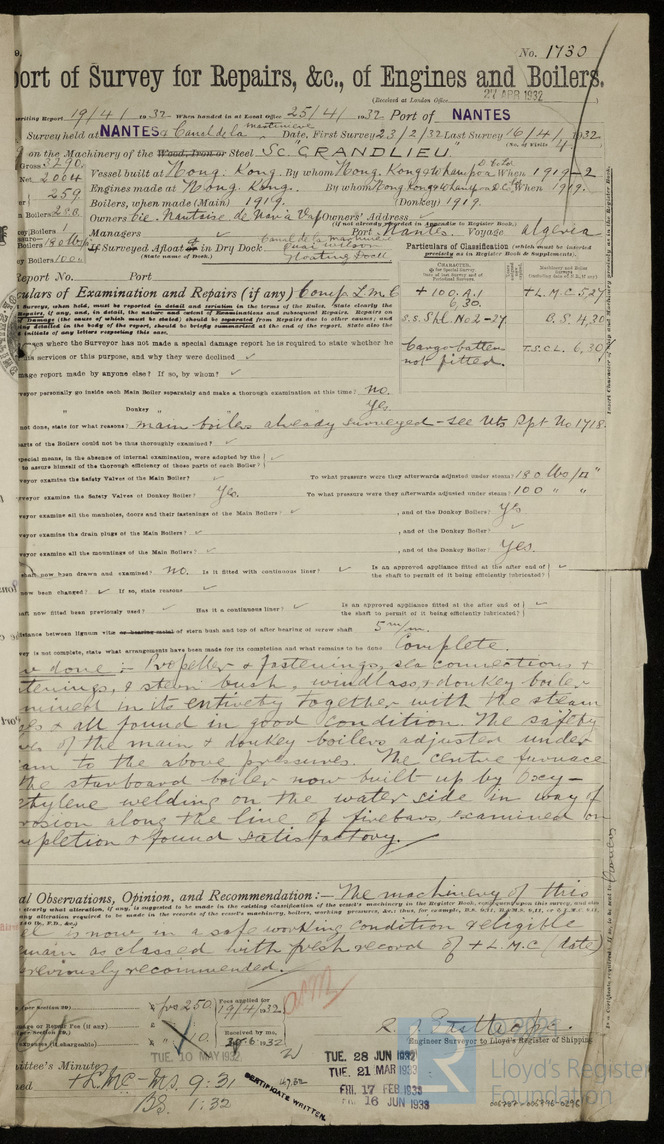 No. 1730
port of Survey for Repairs, &c., of Engines and Boilers.
(Received at London Office 27 APR 1932)
writing Report 19/4/1932 When handed in at Local Office 25/4/1932 Port of NANTES
Survey held at NANTES & Canal de la Martiniere Date, First Survey 23/2/32 Last Survey 16/4/1932
(No. of Visits 4)
on the Machinery of the Wood, Iron or Steel Sc "GRANDLIEU"
Gross 3270
Net 2064
Vessel built at Hong Kong. By whom Hong Kong & Whampoa D. Co Ltd When 1919-2
259 Engines made at Hong Kong. By whom Hong Kong & Whampoa D. Co When 1919.
Boilers 1 Boilers, when made (Main) 1919. (Donkey) 1919.
Owners Cie. Nantaise de Nav. à Vap Owners' Address ✓
(if not already recorded in Appendix to Register Book.)
Managers ✓ Port Nantes. Voyage Algeria
Boilers 180 lbs If Surveyed Afloat or in Dry Dock Canal de la Martiniere
(State name of Dock.) Floating Dock
Particulars of Classification (which must be inserted precisely as in Register Book & Supplements).
Report No. Port
culars of Examination and Repairs (if any) Comp L.M.C
+ 100.A.1
6,30.
s.s. Shl. No. 2-27
Cargo batten
not fitted.
+ L.M.C. 5,27
B.S. 4,30
T.S.C.L. 6,30
ses where the Surveyor has not made a special damage report he is required to state whether he
his services for this purpose, and why they were declined ✓
mage report made by anyone else? If so, by whom? ✓
veyor personally go inside each Main Boiler separately and make a thorough examination at this time? no.
" Donkey " " " " yes
not done, state for what reasons? main boilers already surveyed - see Nts Rpt No 1718.
parts of the Boilers could not be thus thoroughly examined? ✓
special means, in the absence of internal examination, were adopted by the
to assure himself of the thorough efficiency of those parts of each Boiler? ✓
veyor examine the Safety Valves of the Main Boiler? ✓ To what pressure were they afterwards adjusted under steam? 180 lbs/□"
rveyor examine the Safety Valves of Donkey Boiler? Yes. To what pressure were they afterwards adjusted under steam? 100 " "
veyor examine all the manholes, doors and their fastenings of the Main Boilers? ✓ , and of the Donkey Boiler? Yes
veyor examine the drain plugs of the Main Boilers? ✓ , and of the Donkey Boiler? ✓
veyor examine all the mountings of the Main Boilers? ✓ , and of the Donkey Boiler? Yes.
shaft now been drawn and examined? no. Is it fitted with continuous liner? ✓ Is an approved appliance fitted at the after end of the shaft to permit of it being efficiently lubricated? ✓
now been changed? ✓ If so, state reasons ✓
aft now fitted been previously used? ✓ Has it a continuous liner? ✓ Is an approved appliance fitted at the after end of the shaft to permit of it being efficiently lubricated? ✓
istance between lignum vitæ or bearing metal of stern bush and top of after bearing of screw shaft 5 m/m.
vey is not complete, state what arrangements have been made for its completion and what remains to be done Complete.
w done :- Propeller & fastenings, sea connections &
tenings, & stern bush, windlass, & donkey boiler
mined in its entirety together with the steam
es & all found in good condition. The safety
ves of the main & donkey boilers adjusted under
am to the above pressures. The centre furnace
the starboard boiler now built up by oxy-
etylene welding on the water side in way of
rosion along the line of firebars, examined on
mpletion & found satisfactory.
al Observations, Opinion, and Recommendation:— The machinery of this
el is now in a safe working condition & eligible
remain as classed with fresh record of + L.M.C (date)
previously recommended.
frs 250. Fees applied for 19/4/1932
age or Repair Fee (if any)
xpenses (if chargeable)
Received by me,
Engineer Surveyor to Lloyd's Register of Shipping
TUE. 10 MAY 1932
ittee's Minute
+ LMC - MS. 9.31
BS. 1.32
CERTIFICATE WRITTEN
TUE. 28 JUN 1932
TUE. 21 MAR 1933
FRI. 17 FEB 1933
FRI. 16 JUN 1933
Lloyd's Register
Foundation